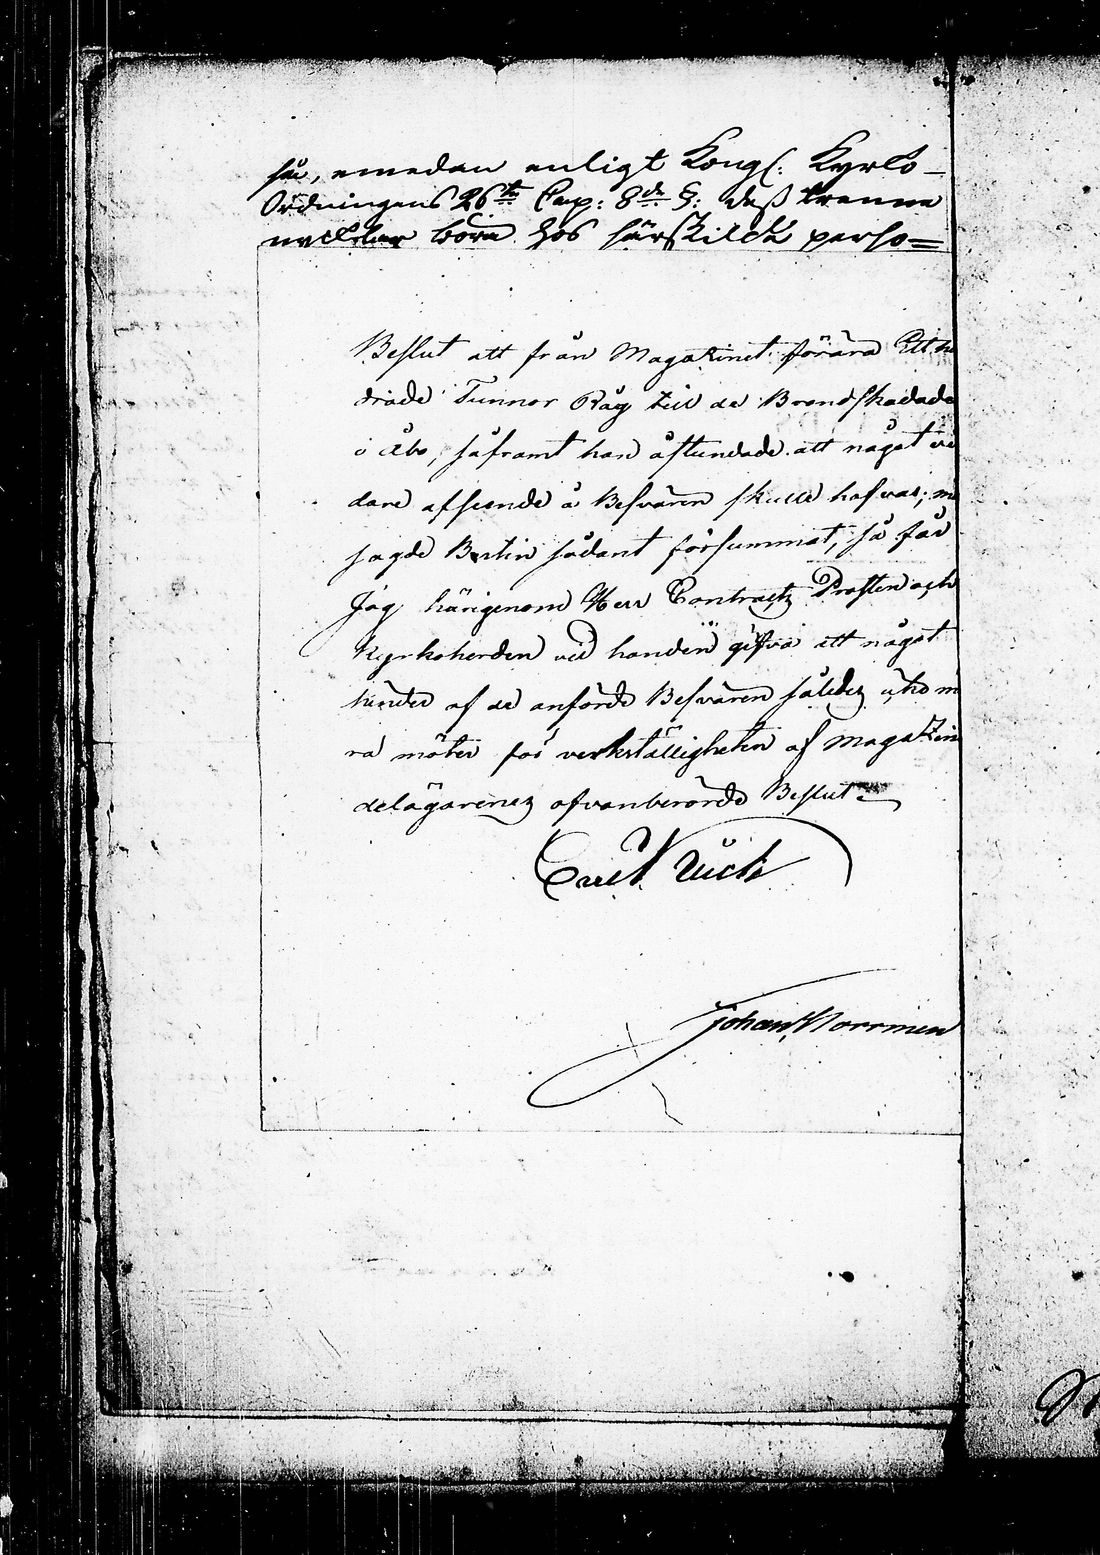 så, emedan enligt Kongl: Kyrko-
Ordningens 26te Cap: 8de §: dess trenne
nycklar böra hos särskilda perso=
Beslut att från Magazinet förära Ett hu
drade Tunnor Råg till de Brandskadade
i Åbo, såframt han åstundade att något vi
dare afseende å Besvären skulle hafvas; m
sagde Bertin sådant försummat, så får
Jag härigenom Herr Contracts Prosten och
Kyrkoherden vid handen gifva att något
hinder af de anförde Besvären således icke m
ra möter för verkställigheten af Magazin
delägarenes ofvanberörde Beslut
Johan Norrmen